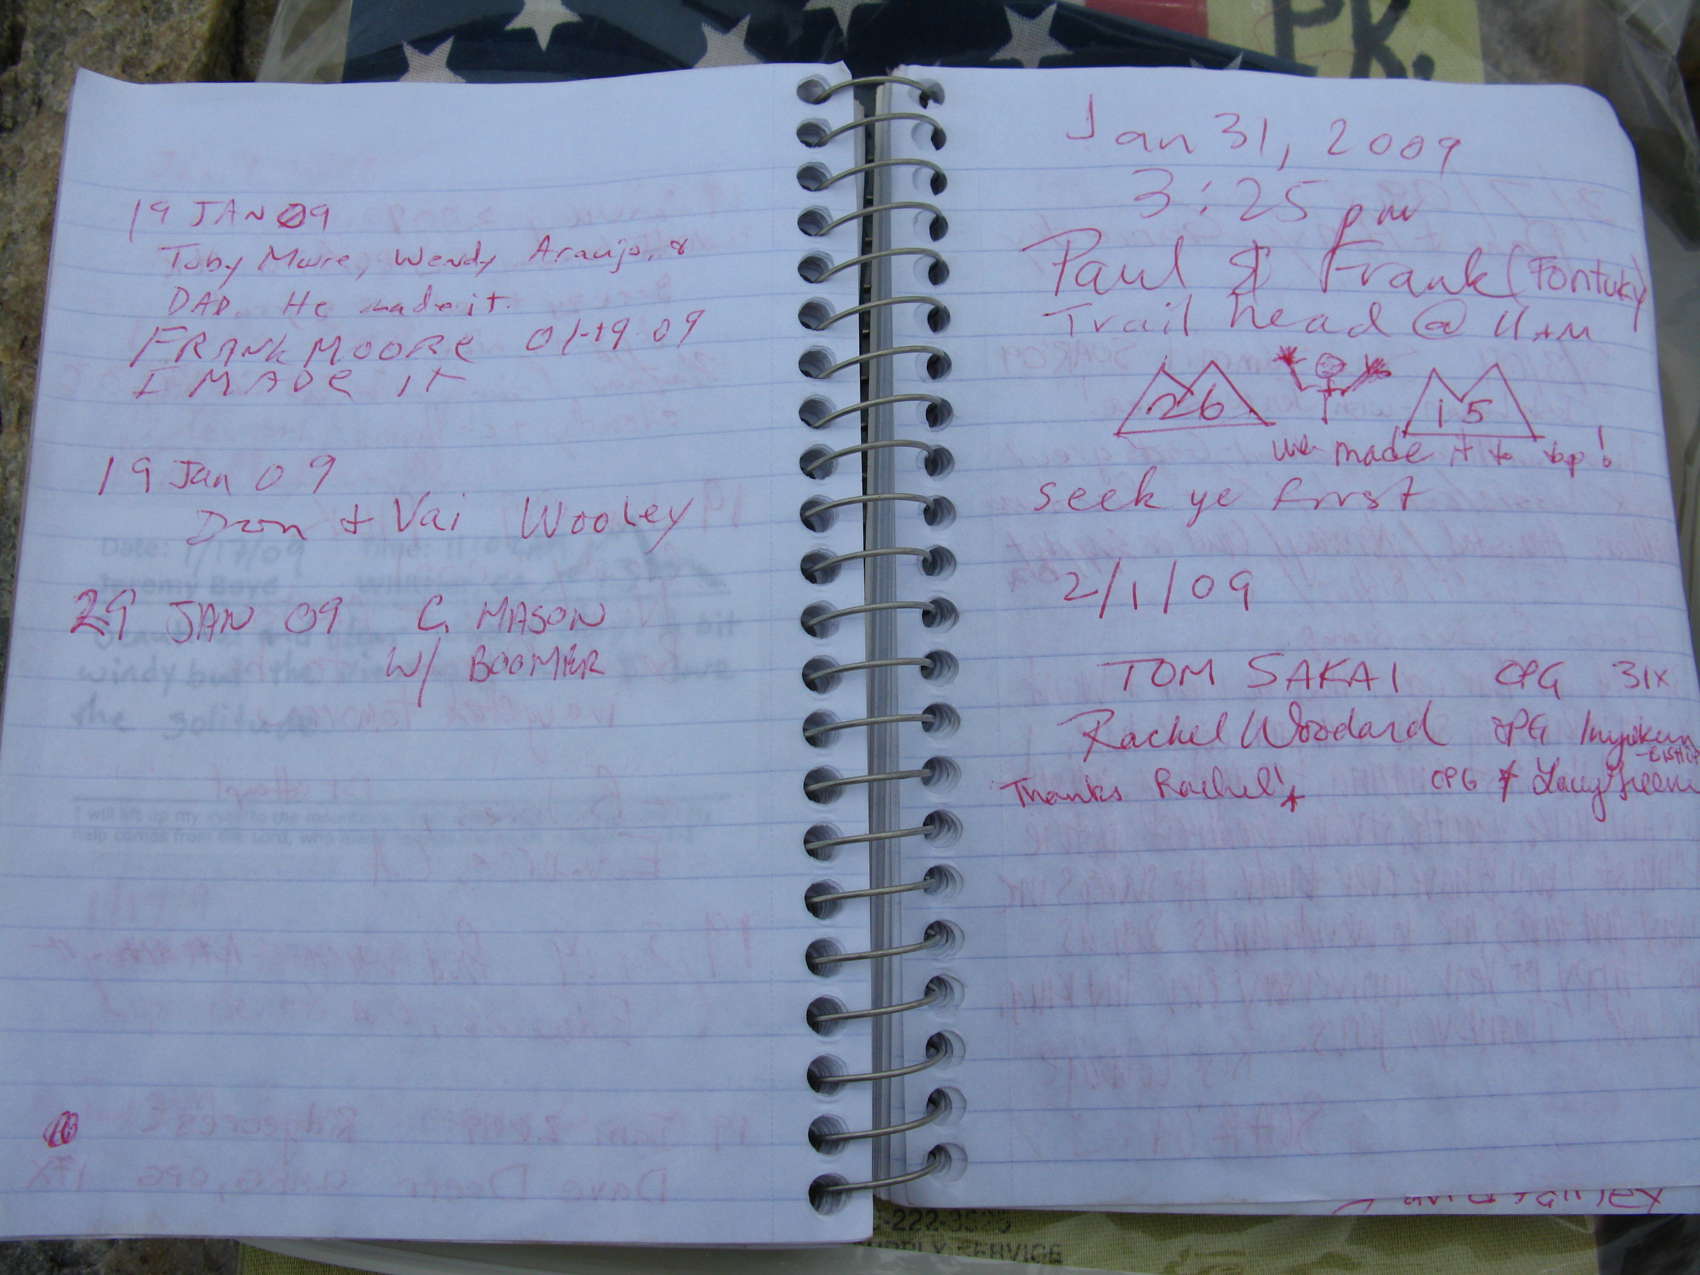 PK.
19 JAN 09
Toby Moore, Wendy Araujo, &
DAD. He made it.
FRANK MOORE 01-19-09
I MADE IT
19 Jan 09
Don + Vai Wooley
29 JAN 09 C. MASON
W/ BOOMER
Jan 31, 2009
3:25 pm
Paul & Frank (Fontuky)
Trail head @ 11 AM
26 15
we made it to top!
seek ye first
2/1/09
TOM SAKAI OPG 31X
Rachel Woodard OPG Inyokern
Thanks Rachel! OPG
-222-3535
SUPPLY SERVICE